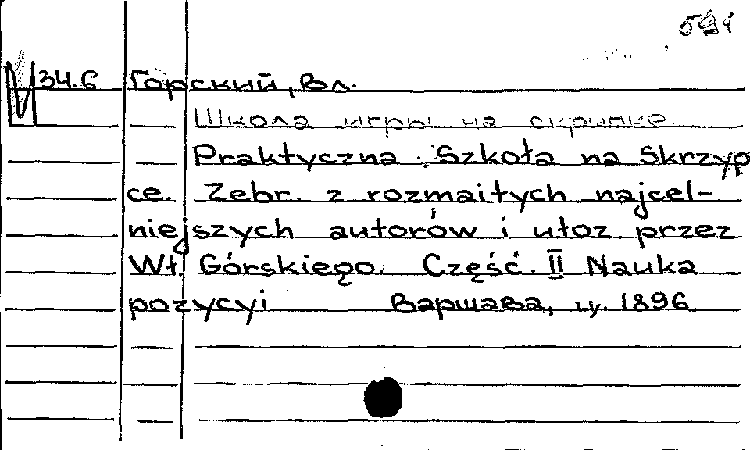 34.6 Горский, Вл.
Школа игры на скрипке
Praktyczna Szkoła na Skrzyp
ce. Zebr. z rozmaitych najcel-
niejszych autorów i ułoz przez
Wł. Górskiego. Część. II Nauka
pozycyi Варшава, ц.у. 1896